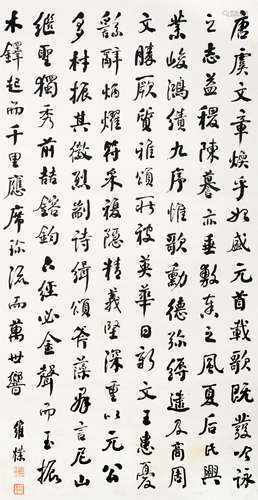 唐虞文章煥乎始盛元首載歌既發吟詠
之志益稷陳謩亦垂敷奏之風夏后氏興
業峻鴻績九序惟歌勳德弥縟逮及商周
文勝厥質雅頌所被英華日新文王患憂
繇辭炳燿符采複隱精義堅深重以元公
多材振其徽烈剬詩緝頌斧藻群言尼山
繼聖獨秀前喆鎔鈞六經必金聲而玉振
木鐸起而千里應席珎流而萬世響
維樸